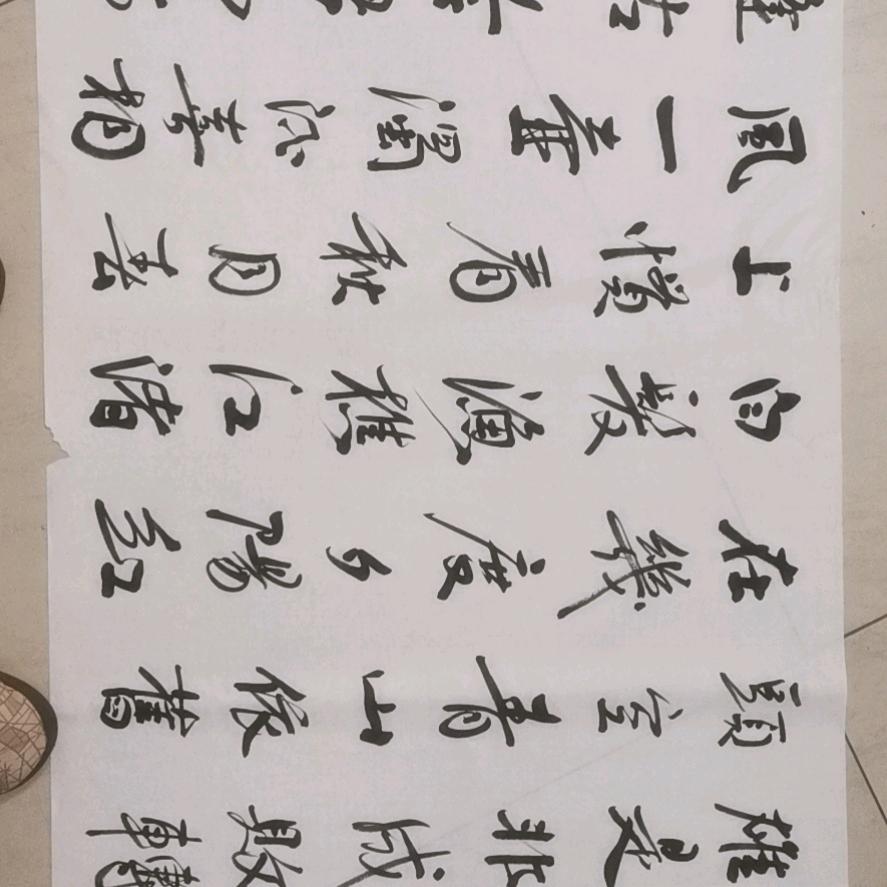 雄是非成敗轉
頭空青山依舊
在幾度夕陽紅
白髮漁樵江渚
上慣看秋月春
風一壺濁酒喜相
逢